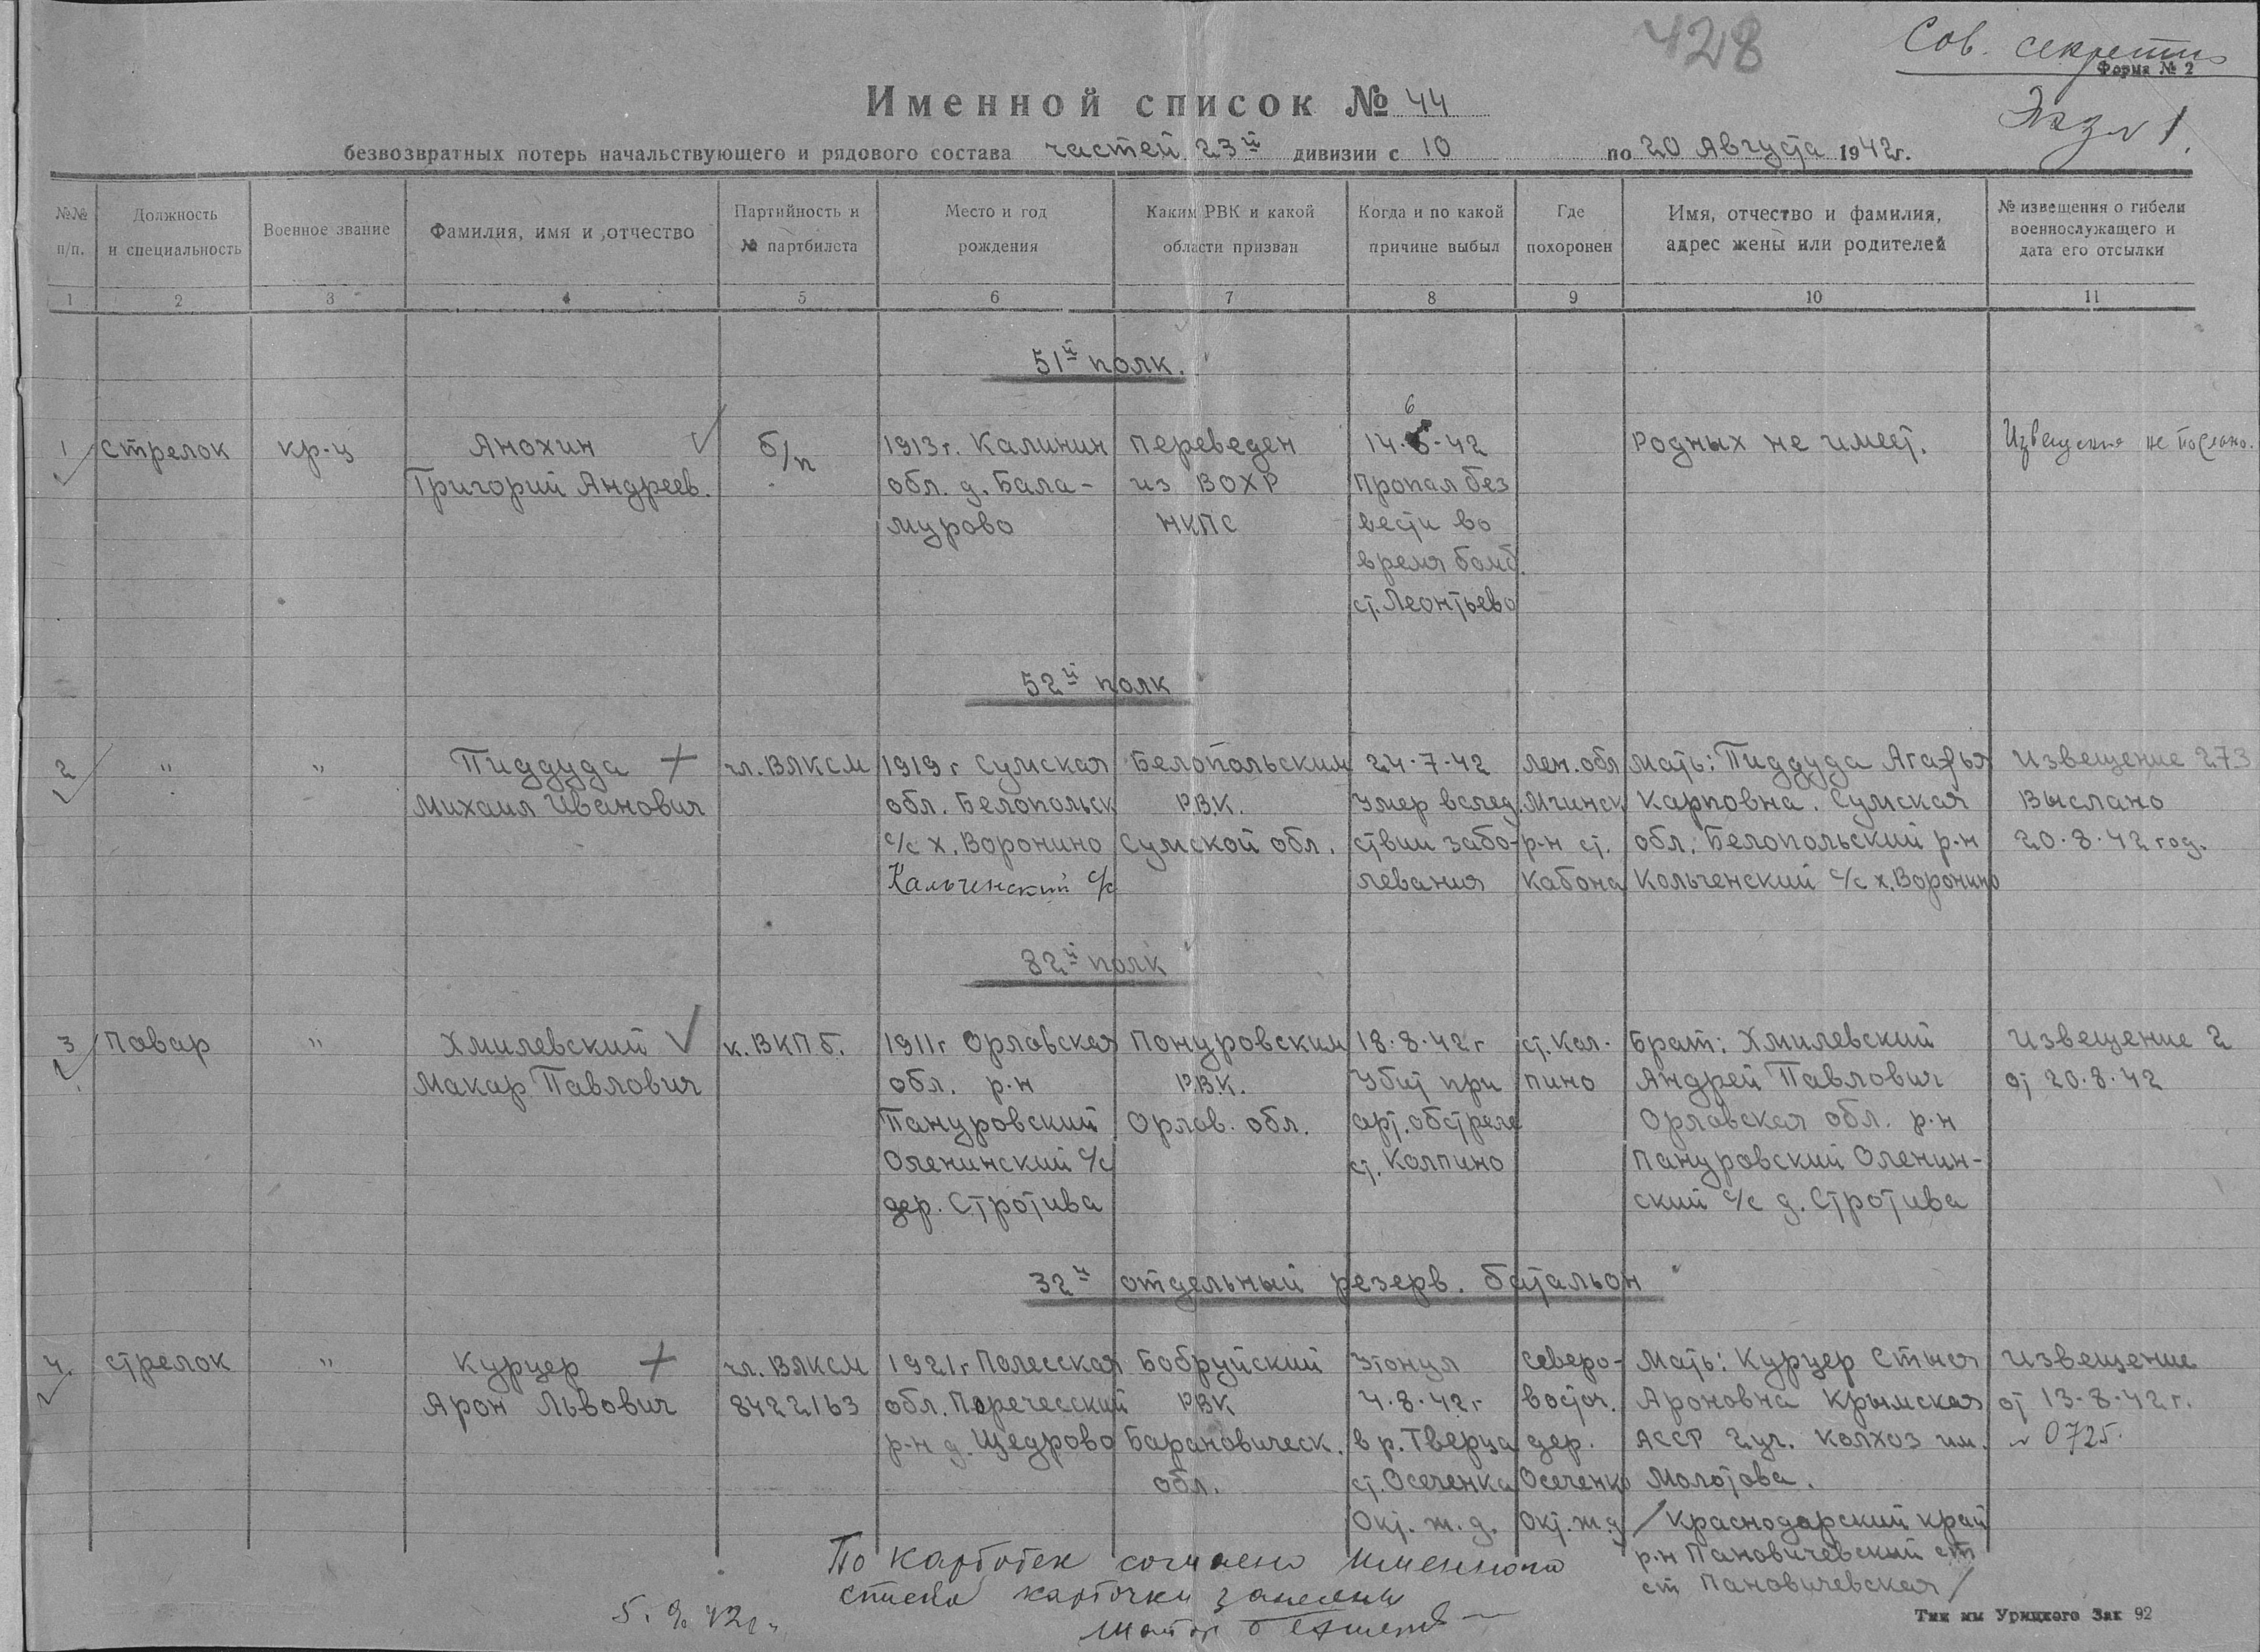 428
Сов. секретно
Форма № 2
Экз № 1.
Именной список № 44
безвозвратных потерь начальствующего и рядового состава частей 23й дивизии с 10 по 20 Августа 1942г.
№№ п/п.
Должность и специальность
Военное звание
Фамилия, имя и отчество
Партийность и № партбилета
Место и год рождения
Каким РВК и какой области призван
Когда и по какой причине выбыл
Где похоронен
Имя, отчество и фамилия, адрес жены или родителей
№ извещения о гибели военнослужащего и дата его отсылки
1 2 3 4 5 6 7 8 9 10 11
51й полк.
6
1 стрелок кр-ц Анохин б/п 1913г. Калинин переведен 14·6·42 Родных не имеет. Извещения не послано.
Григорий Андреев. обл. д. Бала- из ВОХР Пропал без
мурово НКПС вести во
время бомб.
ст. Леонтьево
52й полк
2 " " Пиддуда + чл. ВЛКСМ 1919г Сумская Белопольским 24·7·42 Лен. обл Мать: Пиддуда Агафья Извещение 273
Михаил Иванович обл. Белопольск РВК. Умер вслед. Мгинск Карповна. Сумская Выслано
с/с х. Воронино Сумской обл. ствии забо- р-н ст. обл. Белопольский р-н 20·8·42 год.
Кальченский с/с левания Кабона Кольченский с/с х. Воронино
82й полк
3 Повар " Хмилевский к. ВКПб. 1911г Орловская Понуровским 18·8·42г ст. Кол- Брат: Хмилевский Извещение 2
Макар Павлович обл. р-н РВК. Убит при пино Андрей Павлович от 20·8·42
Пануровский Орлов. обл. арт. обстреле Орловская обл. р-н
Оленинский с/с ст. Колпино Пануровский Оленин-
дер. Стротива ский с/с д. Стротива
32й отдельный резерв. батальон
4. стрелок " Курцер + чл. ВЛКСМ 1921г Полесская Бобруйский Утонул северо- Мать: Курцер Стыся Извещение
Арон Львович 8422163 обл. Паречесский РВК 4·8·42г восточ. Ароновна Крымская от 13·8·42г.
р-н д. Щедрово Барановическ. в р. Тверца дер. АССР 2 уч. колхоз им. № 0725.
обл. ст. Осеченка Осеченко Молотова.
Окт. ж. д. Окт. ж д /Краснодарский край
р-н Пановичевский ст
ст Пановичевская/
По картотек согласно именного
списка карточки
5. 9. 42г.
Тип им Урицкого Зак 92